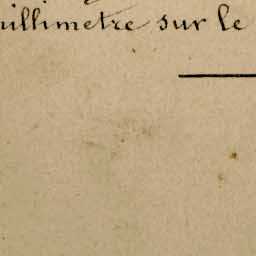 illimetre sur le